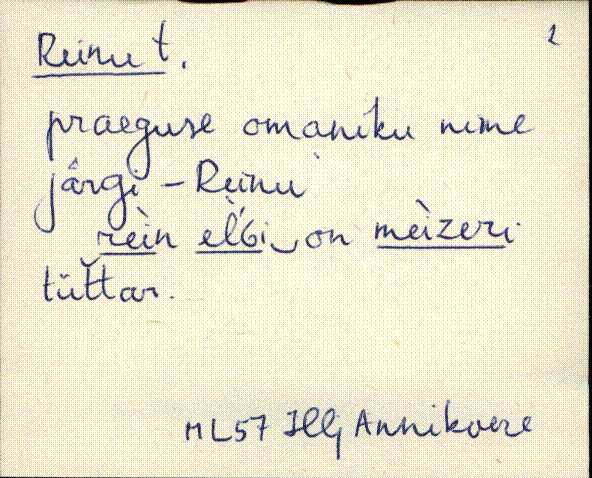 2
Reinu t.
praeguse omaniku nime
järgi – Reinu
rèin elʹbi on mèizeri
tüttar.
ML57 Illj Annikvere